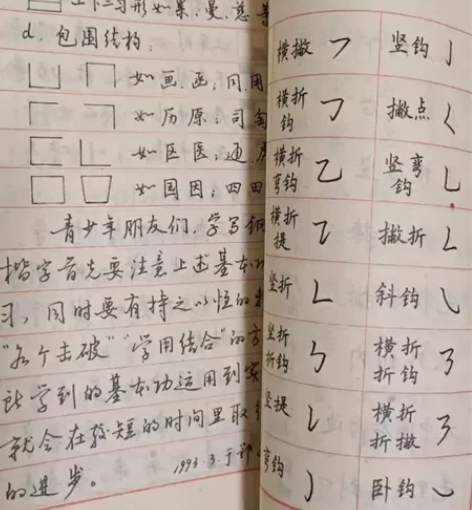 上下三分形如果、曼、慈
d. 包围结构：
如画、画；同、用
如历原；司
如区医；通
如国因；四田
青少年朋友们，学写钢
楷字首先要注意上述基本功
习，同时要有持之以恒的
“各个击破”“学用结合”的方
让学到的基本功运用到实
就会在较短的时间里取
的进步。 1993.3.于
横撇 竖钩
横折钩 撇点
横折弯钩 竖弯钩
横折提 撇折
竖折 斜钩
竖折折钩 横折折钩
竖提 横折折撇
弯钩 卧钩